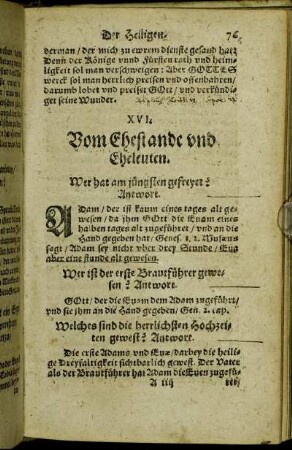 Der Heiligen. 76
derman / der mich zu ewrem dienste gesand hat:
Denn der Könige vnnd Fürsten rath vnd heim-
ligkeit sol man verschweigen : Aber GOTTES
werck sol man herrlich preisen vnd offenbahren /
darumb lobet vnd preiset GOtt / vnd verkündi-
get seine Wunder.
XVI.
Vom Ehestande vnd
Eheleuten.
Wer hat am jüngsten gefreyet?
Antwort.
ADam / der ist kaum eines tages alt ge-
wesen / da jhm GOtt die Euam eines
halben tages alt zugeführet / vnd an die
Hand gegeben hat / Genes. 1. 2.
sagt / Adam sey nicht vber drey Stunde / Eua
aber eine stunde alt gewesen.
Wer ist der erste Brautführer gewe-
sen? Antwort.
GOtt / der die Euam dem Adam zugeführt /
vnd sie jhm an die Hand gegeben / Gen. 2. cap.
Welches sind die herrlichsten Hochzei-
ten gewest? Antwort.
Die erste Adams vnd Euæ / darbey die heili-
ge Dreyfaltigkeit sichtbarlich gewest. Der Vater
als der Brautführer hat Adam die Euen zugefü-